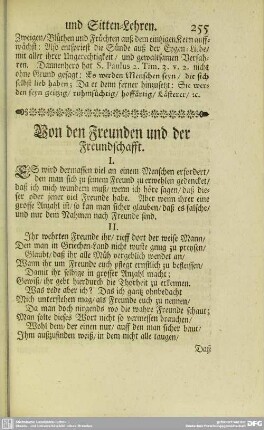 und Sitten-Lehren. 255
Zweigen/ Blüthen und Früchten auß dem einzigen Kern auff-
wächst: Also entsprießt die Sünde auß der Eygen-Liebe/
mit aller ihrer Ungerechtigkeit/ und gewaltsamen Verfah-
ren. Dannenhero hat S. Paulus 2. Tim. 3. v. 2. nicht
ohne Grund gesagt: Es werden Menschen seyn/ die sich
selbst lieb haben; Da er denn ferner hinzusetzt: Sie wer-
den seyn geitzig/ ruhmsüchtig/ hoffärtig/ Lästerer/ ꝛc.
Von den Freunden und der
Freundschafft.
I.
ES wird dermassen viel an einem Menschen erfordert/
den man sich zu seinem Freund zu erwehlen gedencket/
daß ich mich wundern muß/ wenn ich höre sagen/ daß die-
ser oder jener viel Freunde habe. Aber wenn ihrer eine
grosse Anzahl ist/ so kan man sicher glauben/ daß es falsche/
und nur dem Nahmen nach Freunde sind.
II.
Ihr wehrten Freunde ihr/ rieff dort der weise Mann/
Den man in Griechen-Land nicht wuste gnug zu preysen/
Glaubt/ daß ihr alle Müh vergeblich wendet an/
Wann ihr um Freunde euch pflegt ernstlich zu befleissen/
Damit ihr selbige in grosser Anzahl macht;
Gewiß/ ihr gebt hierdurch die Thorheit zu erkennen.
Was red ich aber ich? Das ich gantz ohnbedacht
Mich unterstehen mag/ als Freunde euch zu nennen/
Da man doch nirgends wo die wahre Freunde schaut;
Man solte dieses Wort nicht so vermessen brauchen/
Wohl dem/ der einen nur/ auff den man sicher baut/
Ihm außzufinden weiß/ in dem nicht alle taugen/
Daß